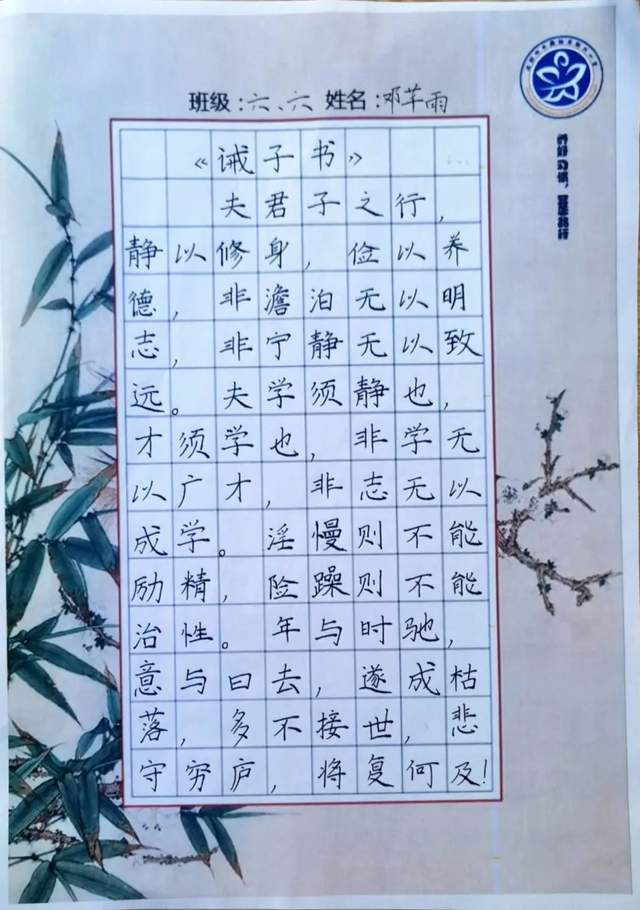 班级：六、六 姓名：邓芊雨
《诫子书》
夫君子之行，
静以修身，俭以养
德，非澹泊无以明
志，非宁静无以致
远。夫学须静也，
才须学也，非学无
以广才，非志无以
成学。淫慢则不能
励精，险躁则不能
治性。年与时驰，
意与日去，遂成枯
落，多不接世，悲
守穷庐，将复何及！